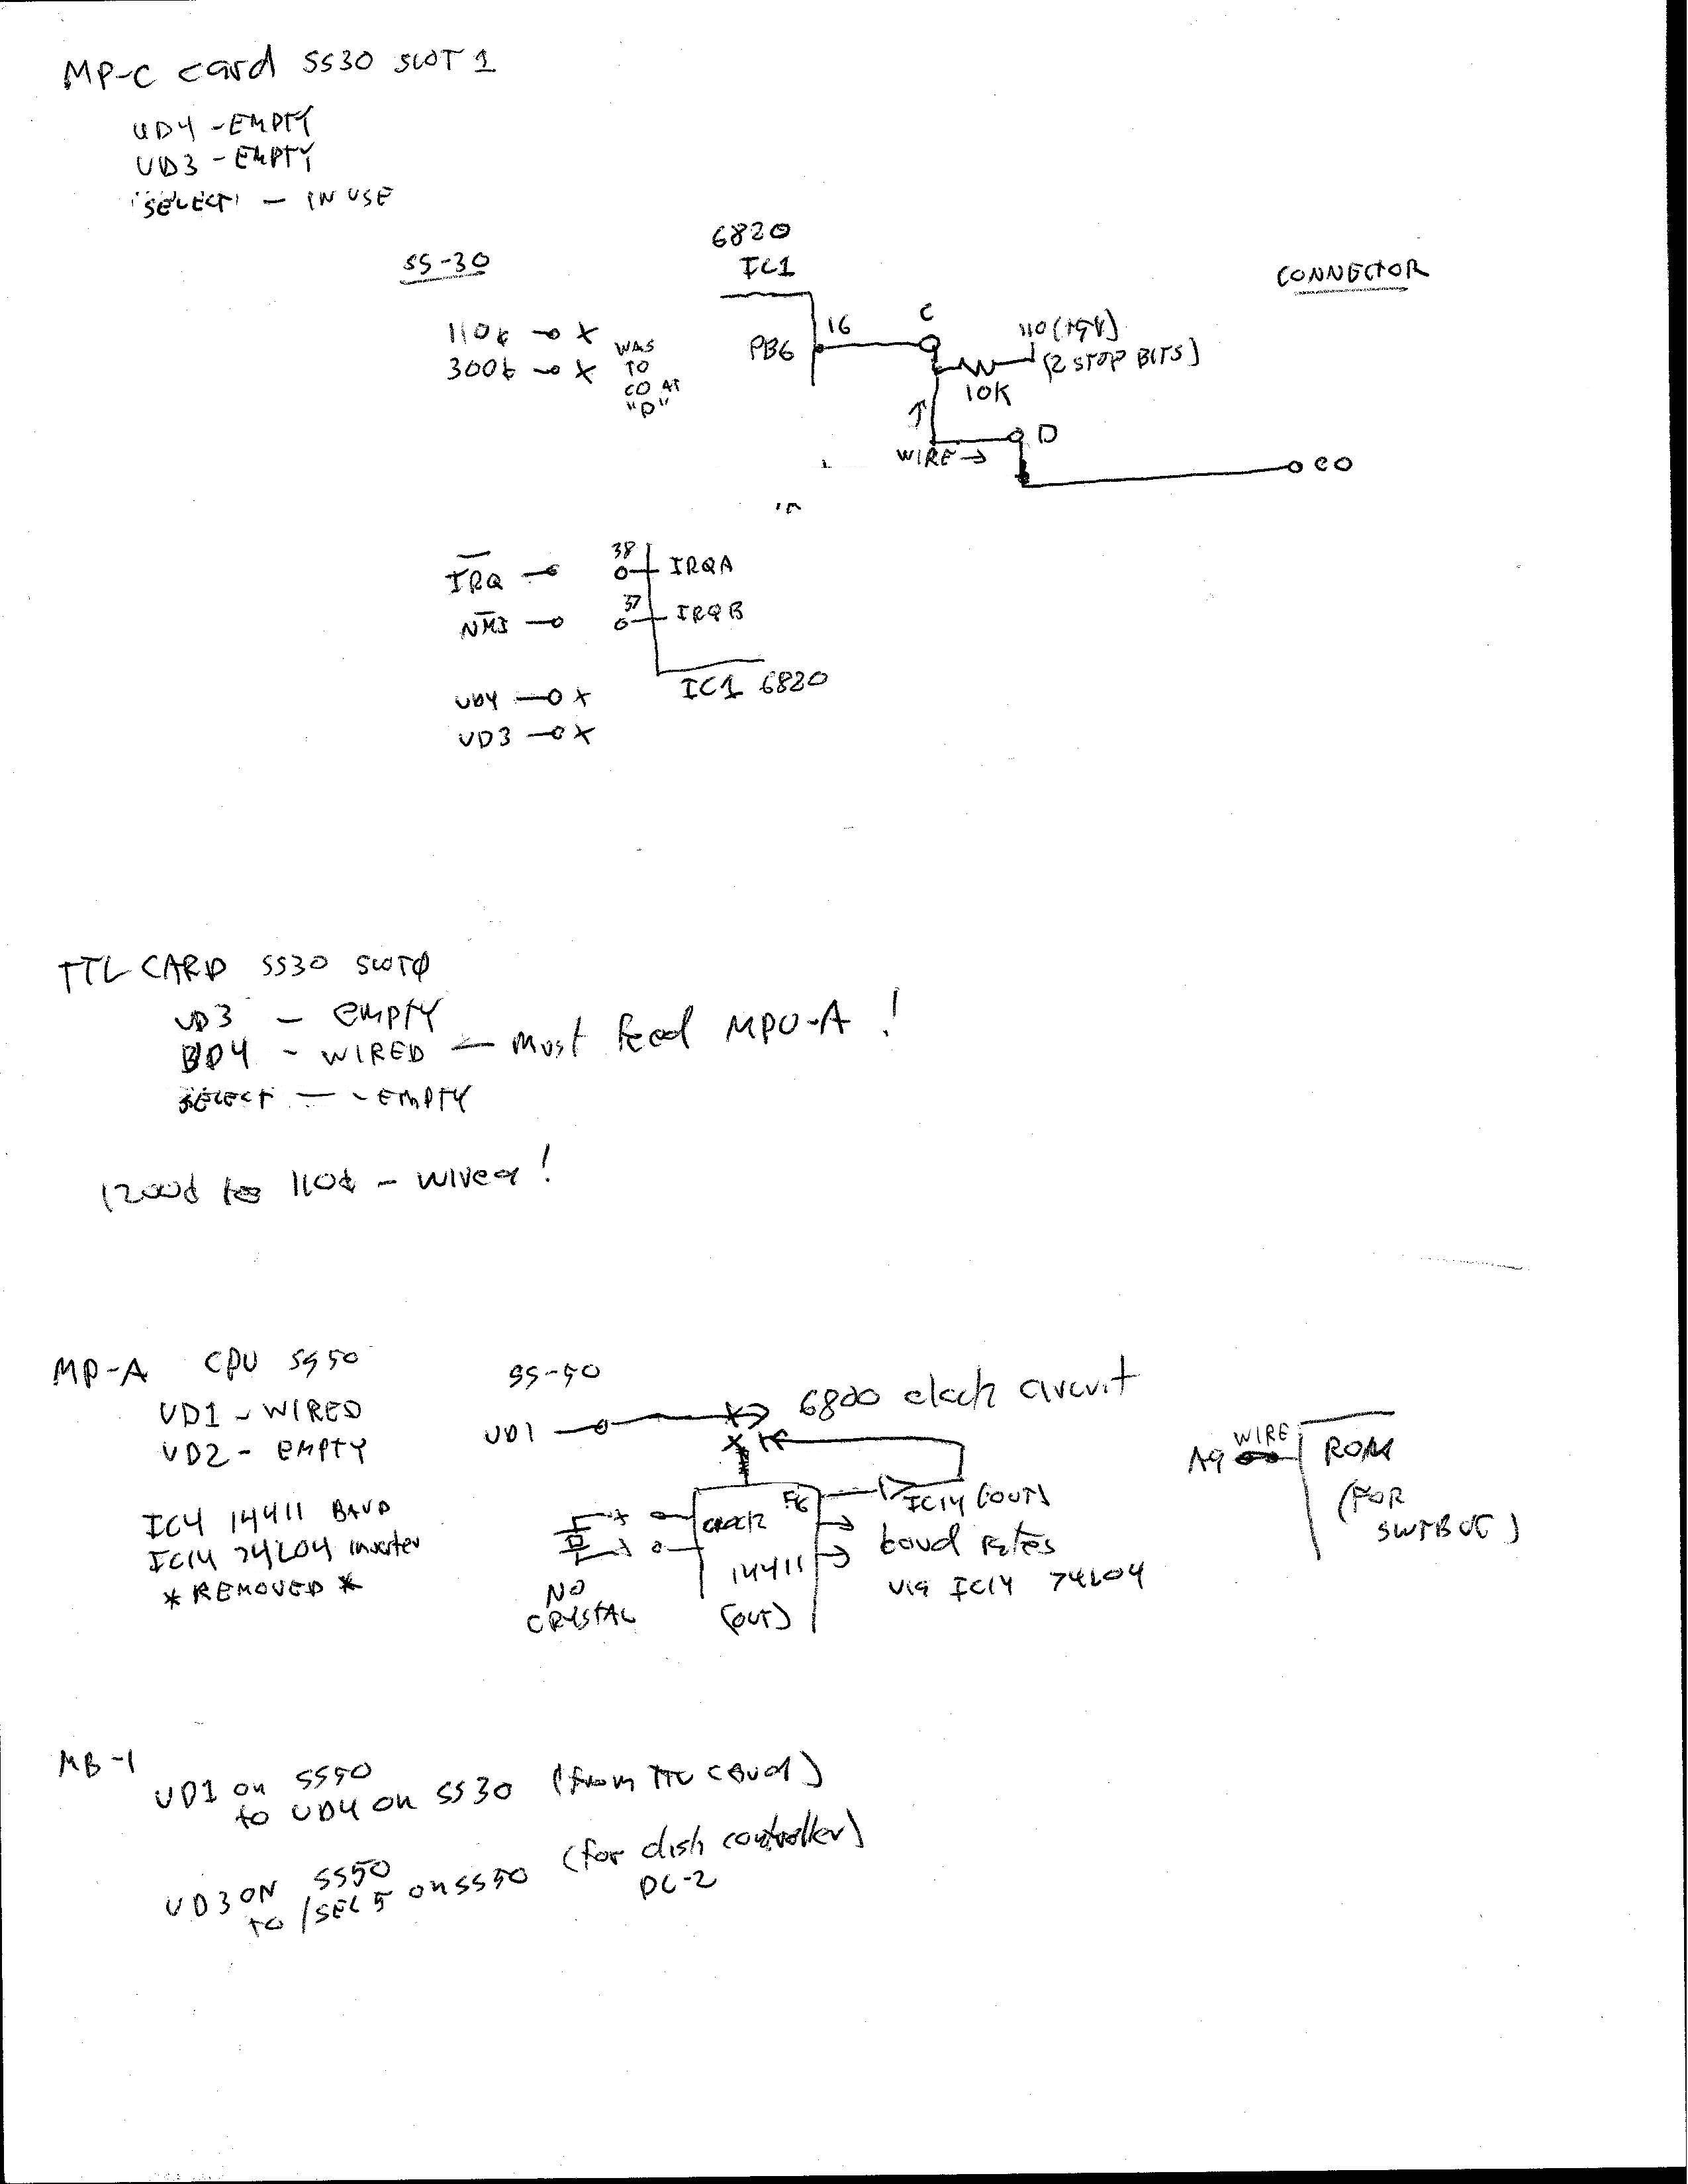 MP-C card SS30 SLOT 1
UD4 - EMPTY
UD3 - EMPTY
"SELECT" - IN USE
SS-30
6820
IC1
CONNECTOR
110b X
300b X
WAS
TO
CO AT
"D"
PB6
16
C
110
(2 STOP BITS)
10K
WIRE
D
CO
IRQ
NMI
38
IRQA
37
IRQB
IC1 6820
UD4 X
UD3 X
TTL CARD SS30 SLOT0
UD3 - EMPTY
UD4 - WIRED - Must feed MPU-A!
SELECT - - EMPTY
1200b to 110b - wired!
MP-A CPU SS50
UD1 - WIRED
UD2 - EMPTY
IC4 14411 BAUD
IC14 74L04 inverter
* REMOVED *
SS-50
UD1
6800 clock circuit
NO
CRYSTAL
CLOCK
14411
(OUT)
IC14 (OUT)
baud rates
via IC14 74L04
A9 WIRE
ROM
(FOR
SWTBUG)
MB-1
UD1 on SS50
to UD4 on SS30 (from TTL card)
UD3 ON SS50
to /SEL5 on SS50 (for disk controller)
DC-2